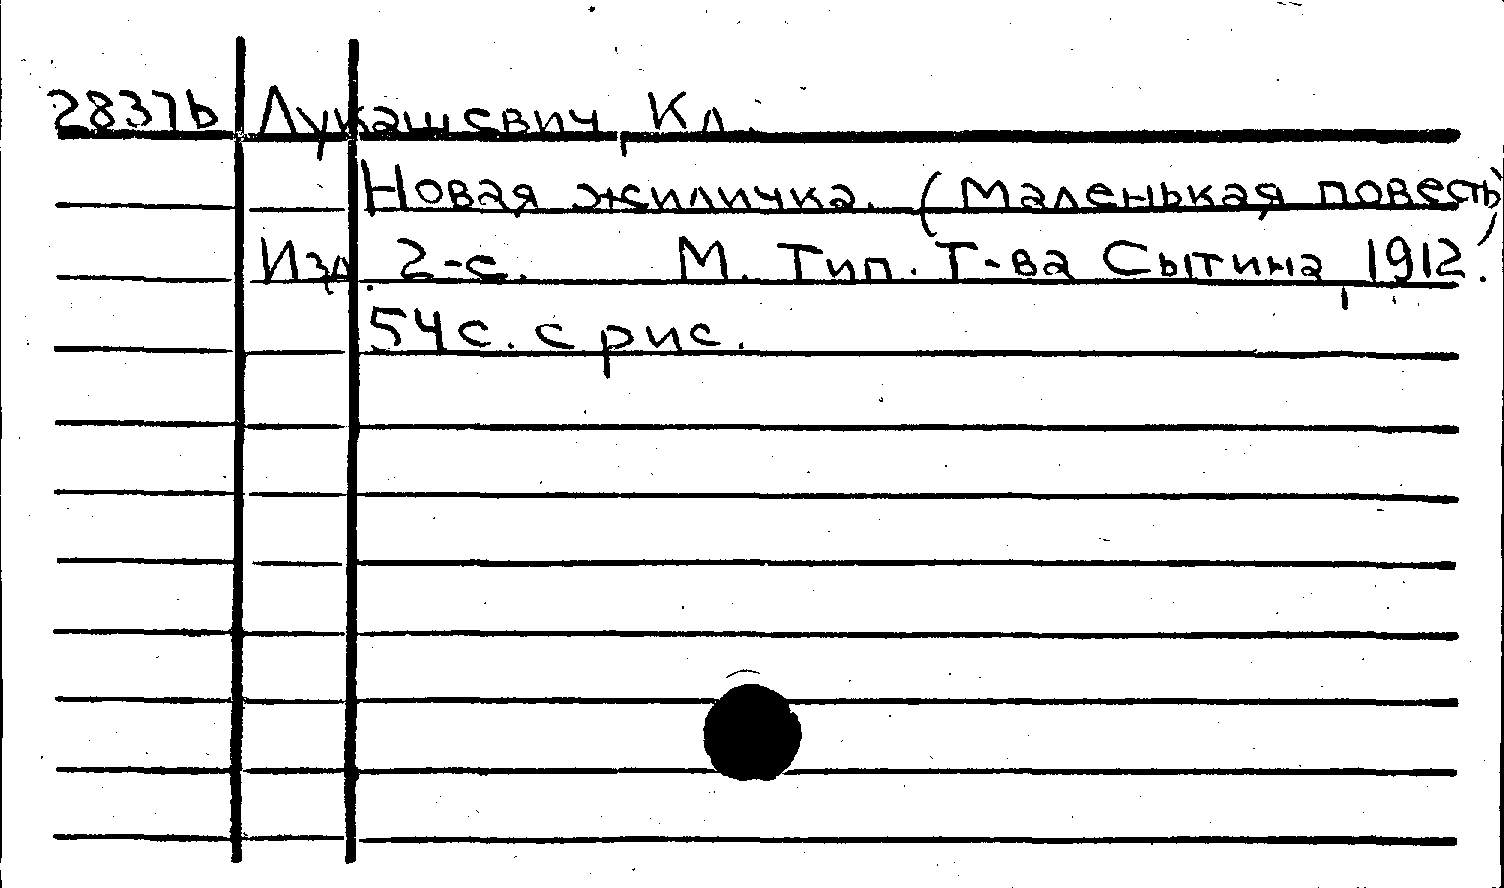 2837b Лукашевич, Кл.
Новая жиличка. (Маленькая повесть)
Изд. 2-е. М. Тип. Т-ва Сытина, 1912.
54с. с рис.